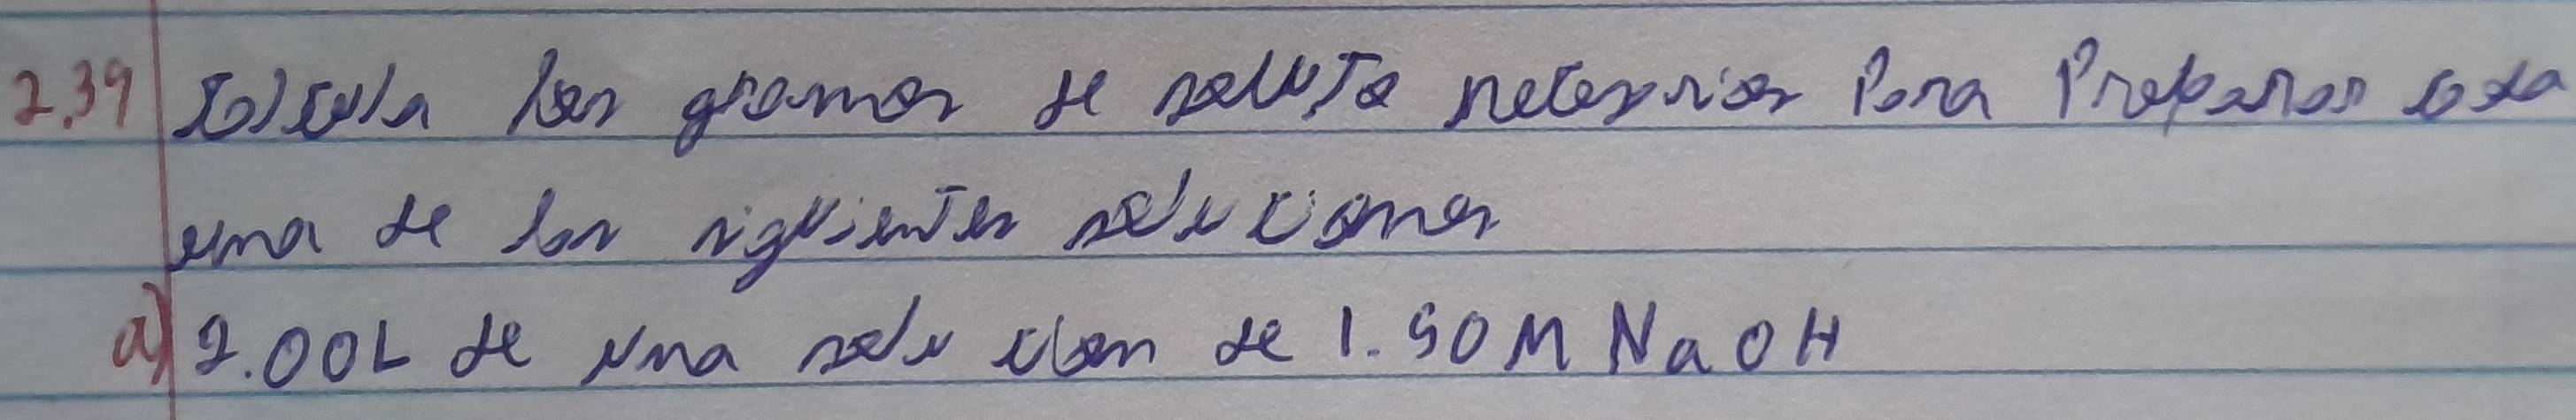 2.39 Calcula los gramos de soluto necesarios Para Preparar cada
una de las siguientes soluciones
a) 2.00L de una solución de 1.50M NaOH